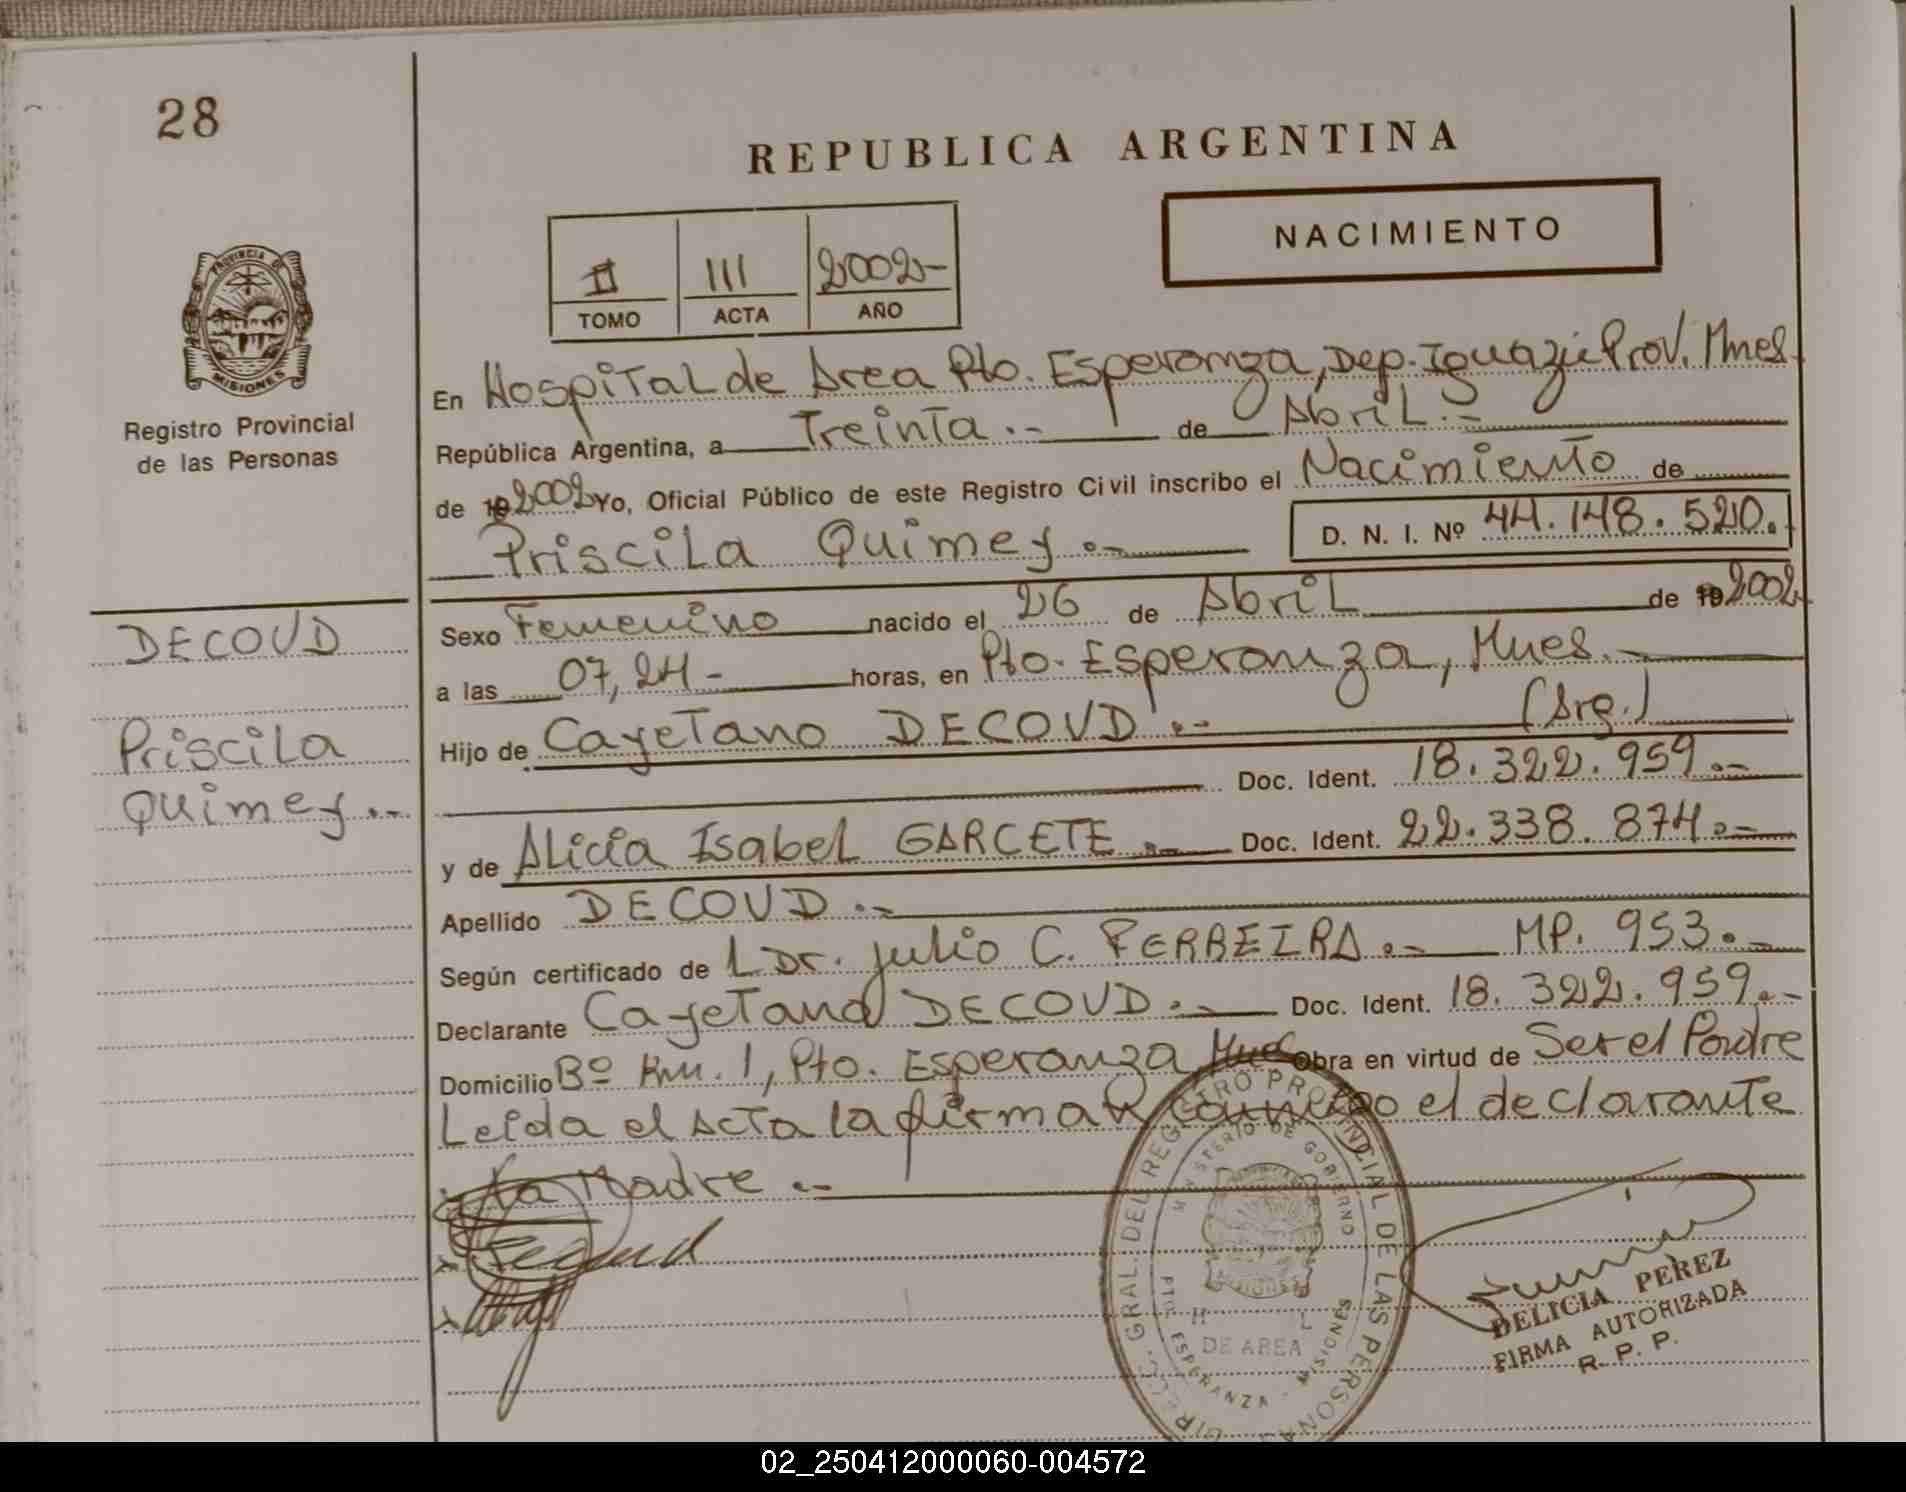 28
REPUBLICA ARGENTINA
NACIMIENTO
II 111 2002-
TOMO ACTA AÑO
PROVINCIA DE
MISIONES
Registro Provincial
de las Personas
En Hospital de Area Pto. Esperanza, Dep. Iguazú Prov. Mnes.
República Argentina, a Treinta.- de Abril.-
de 19 2002 Yo, Oficial Público de este Registro Civil inscribo el Nacimiento de
Priscila Quimey.- D. N. I. Nº 44.148.520.
Sexo Femenino nacido el 26 de Abril de 19 2002
a las 07,24- horas, en Pto. Esperanza, Mnes.-
Hijo de Cayetano DECOUD.- (Arg.)
Doc. Ident. 18.322.959.-
y de Alicia Isabel GARCETE.- Doc. Ident. 22.338.874.-
Apellido DECOUD.-
Según certificado de L Dr. Julio C. FERREIRA.- MP. 953.-
Declarante Cayetano DECOUD.- Doc. Ident. 18.322.959.-
Domicilio Bº Km. 1, Pto. Esperanza, Mnes Obra en virtud de Ser el Padre
Leida el Acta la firman conmigo el declarante
y la Madre.-
DECOUD
Priscila
Quimey.-
DIRECC. GRAL. DEL REGISTRO PROVINCIAL DE LAS PERSONAS
MINISTERIO DE GOBIERNO
MISIONES
DE AREA
PTO. ESPERANZA - MISIONES
DELICIA PEREZ
FIRMA AUTORIZADA
R. P. P.
02_250412000060-004572